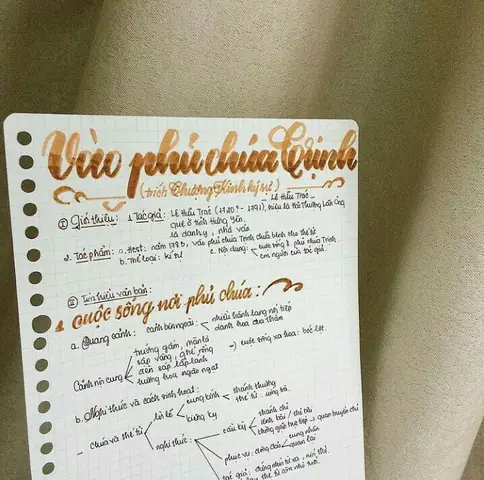 Vào phủ chúa Trịnh
(trích Thượng Kinh ký sự)
- Lê Hữu Trác -
I Giới thiệu: 1. Tác giả: Lê Hữu Trác (1720 - 1791), hiệu là Hải Thượng Lãn Ông
quê ở tỉnh Hưng Yên.
là danh y, nhà văn
2. Tác phẩm: a. HCST: năm 1782, vào phủ chúa Trịnh chữa bệnh cho thế tử
b. Thể loại: kí sự c. Nội dung: cuộc sống ở phủ chúa Trịnh
con người của tác giả.
II Tìm hiểu văn bản:
1. Cuộc sống nơi phủ chúa:
a. Quang cảnh: cảnh bên ngoài: nhiều hành lang nối tiếp
danh hoa đua thắm
Cảnh nội cung trướng gấm, màn là
sập vàng, ghế rồng
đèn sáp lấp lánh
hương hoa ngào ngạt
→ cuộc sống xa hoa:
b. Nghi thức và cách sinh hoạt:
- chúa và thế tử lời lẽ cung kính thánh thượng
thế tử:
kiêng kỵ
nghi thức: cầu kỳ thánh chỉ
lính hầu / thị vệ
không gặp trực tiếp → quan truyền chỉ
phục vụ: đông đảo cung nhân
quan lại
tác giả: đứng chờ từ xa, nín thở.